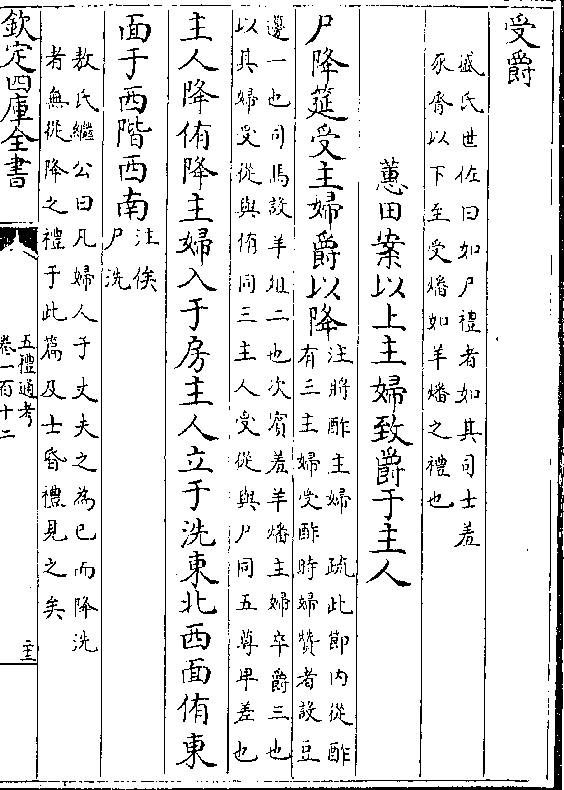 受爵
盛氏世佐曰如尸禮者如其司士羞
豕脀以下至受燔如羊燔之禮也
蕙田案以上主婦致爵于主人
尸降筵受主婦爵以降
注將酢主婦 疏此節内從酢
有三主婦受酢時婦贊者設豆
邊一也司馬設羊俎二也次賓羞羊燔主婦卒爵三也
以其婦受從與侑同三主人受從與尸同五尊卑差也
主人降侑降主婦入于房主人立于洗東北西面侑東
面于西階西南
注俟
尸洗
敖氏繼公曰凡婦人于丈夫之為已而降洗
者無從降之禮于此篇及士昏禮見之矣
欽定四庫全書
五禮通考
卷一百十二